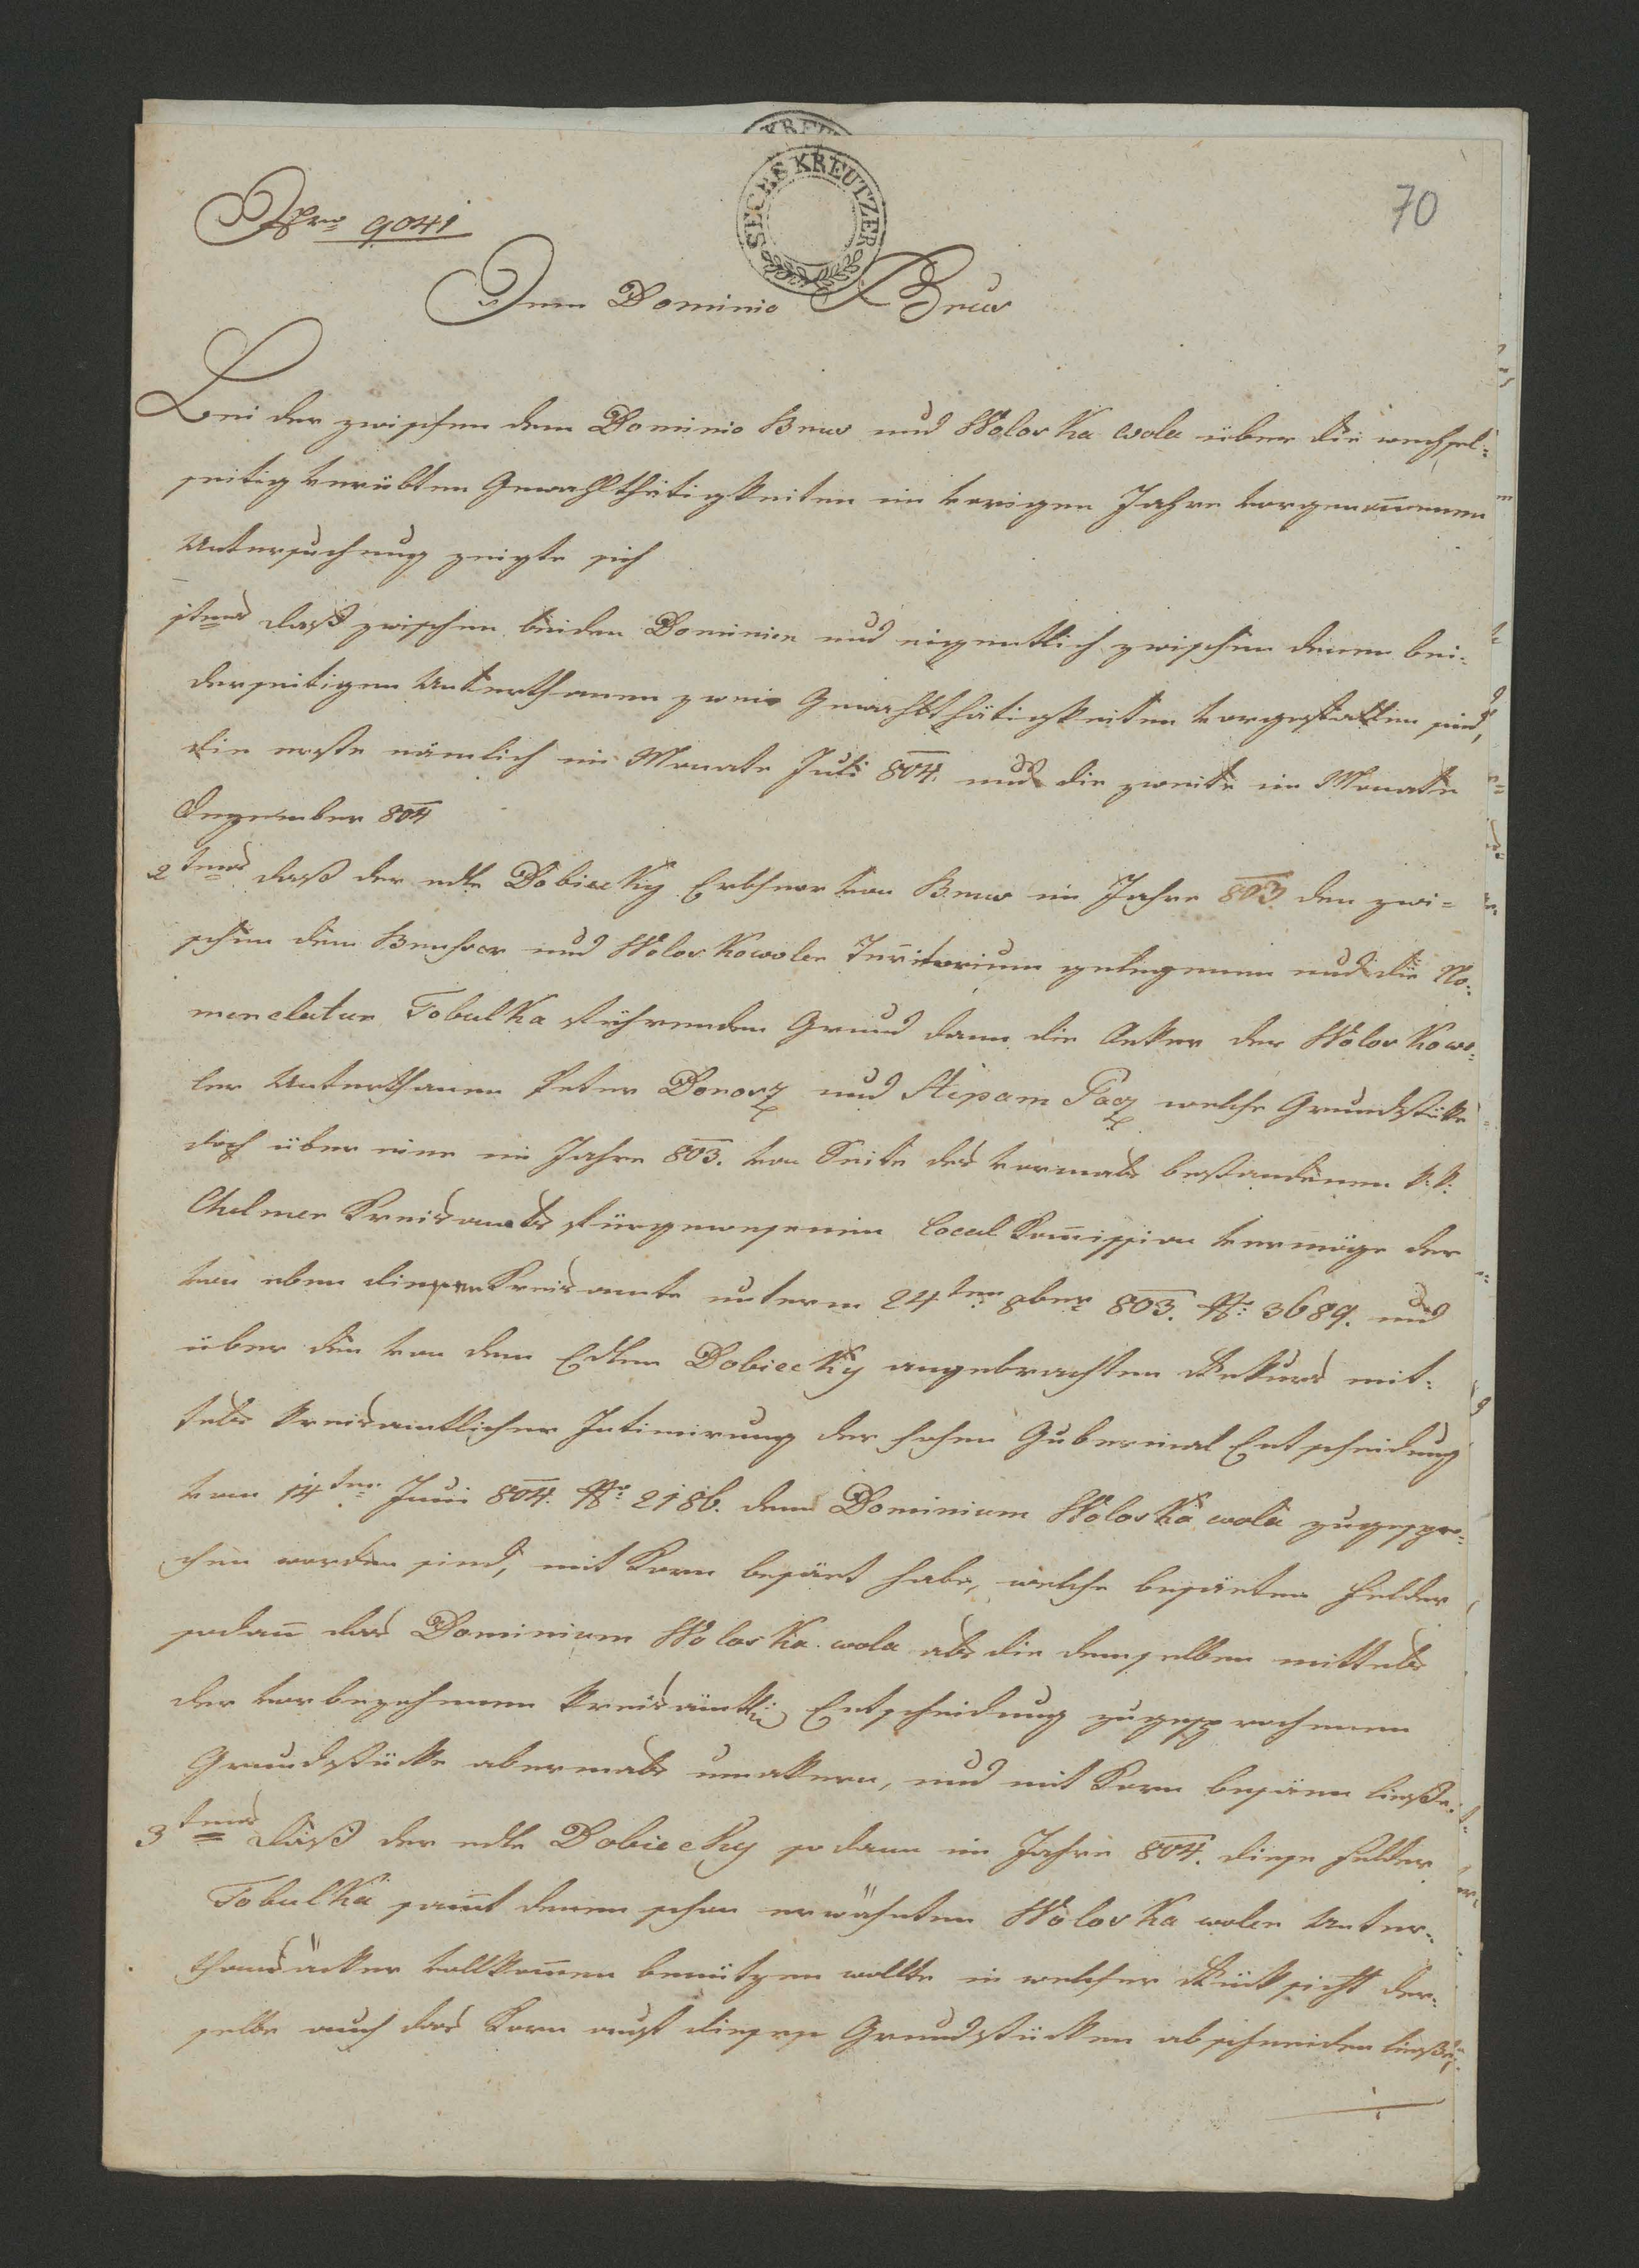 SECHS KREUTZER
70
Nro 9041
Dem Dominio Brus
Bei der zwischen dem Dominio Brus und Woloska wola über die wechsel-
seitig verübten Gewahlthätigkeiten im vorigen Jahre vorgenom̄enen
Untersuchung zeigte sich
1tens daß zwischen beiden Dominien und eigentlich zwischen denen bei-
derseitigen Unterthanen zwei Gewahltthätigkeiten vorgefallen sind,
die erste nämlich im Monate Juli 804. und die zweite im Monate
Dezember 804
2tens daß der edle Dobiecky Erbherr von Brus im Jahre 803 den zwi-
schen dem und Woloskowoler Territorium gelegenen und die No-
menclatur Tobulka führenden Grund dann die Aeker der Woloskowo-
ler Unterthanen Peter Donorz und Stepam Pacz welche Grundstüke
doch über eine im Jahre 803. von Seite des vormals bestandenen k. k.
Chelmer Kreisamts fürgewesenen Local Kom̄ission vermöge der
von eben diesem Kreisamte unterm 24ten 8ber 803. No: 3689. und
über den von dem Edlen Dobiecky angebrachten Rekurs mit-
tels kreisamtlicher Intimirung der hohen Gubernial Entscheidung
vom 14ten Juni 804. No: 2186. dem Dominium Woloska wola zugespro-
chen worden sind, mit Korn besäet habe, welche besäeten Felder
sodan̄ das Dominium Woloska wola als die demselben mittels
der vorbezohenen kreisämtli Entscheidung zugesprochenen
Grundstücke abermals umakern, und mit Korn besäen ließe.
3tens daß der edle Dobiecky sodann im Jahre 804. diese Felder
Tobulka sam̄t denen schon erwähnten Woloska woler Unter-
thansäcker vollkom̄en benützen wollte in welcher Rücksicht der-
selbe auch das Korn auf diesen Grundstücken abschneiden ließe,